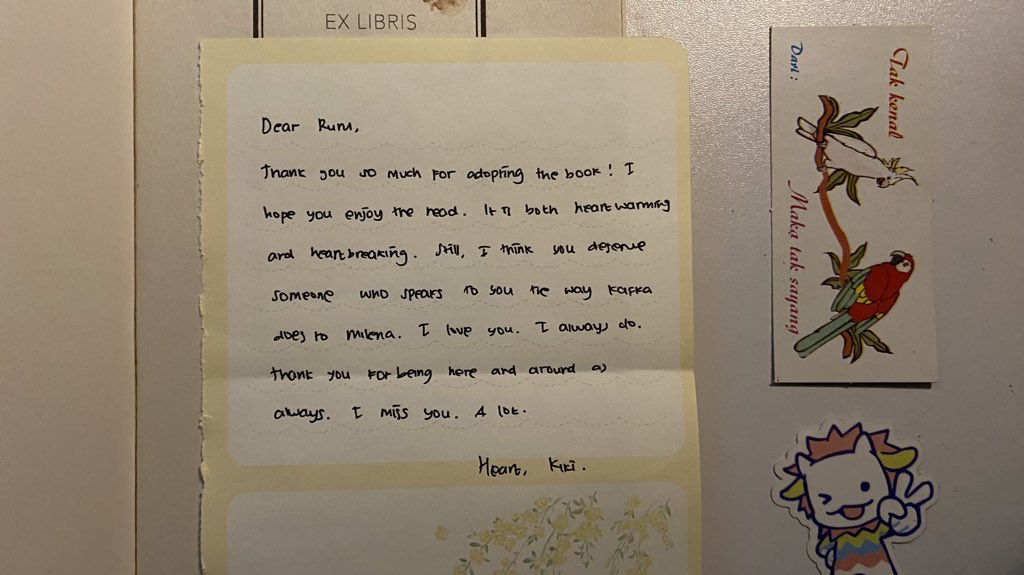 EX LIBRIS
Dear Rum,
Thank you so much for adopting the book! I
hope you enjoy the read. It is both heartwarming
and heartbreaking. Still, I think you deserve
someone who speaks to you the way Kafka
does to Milena. I love you. I always do.
Thank you for being here and around as
always. I miss you. A lot.
Heart, Kiki.
Tak kenal
Maka tak sayang
Dari :